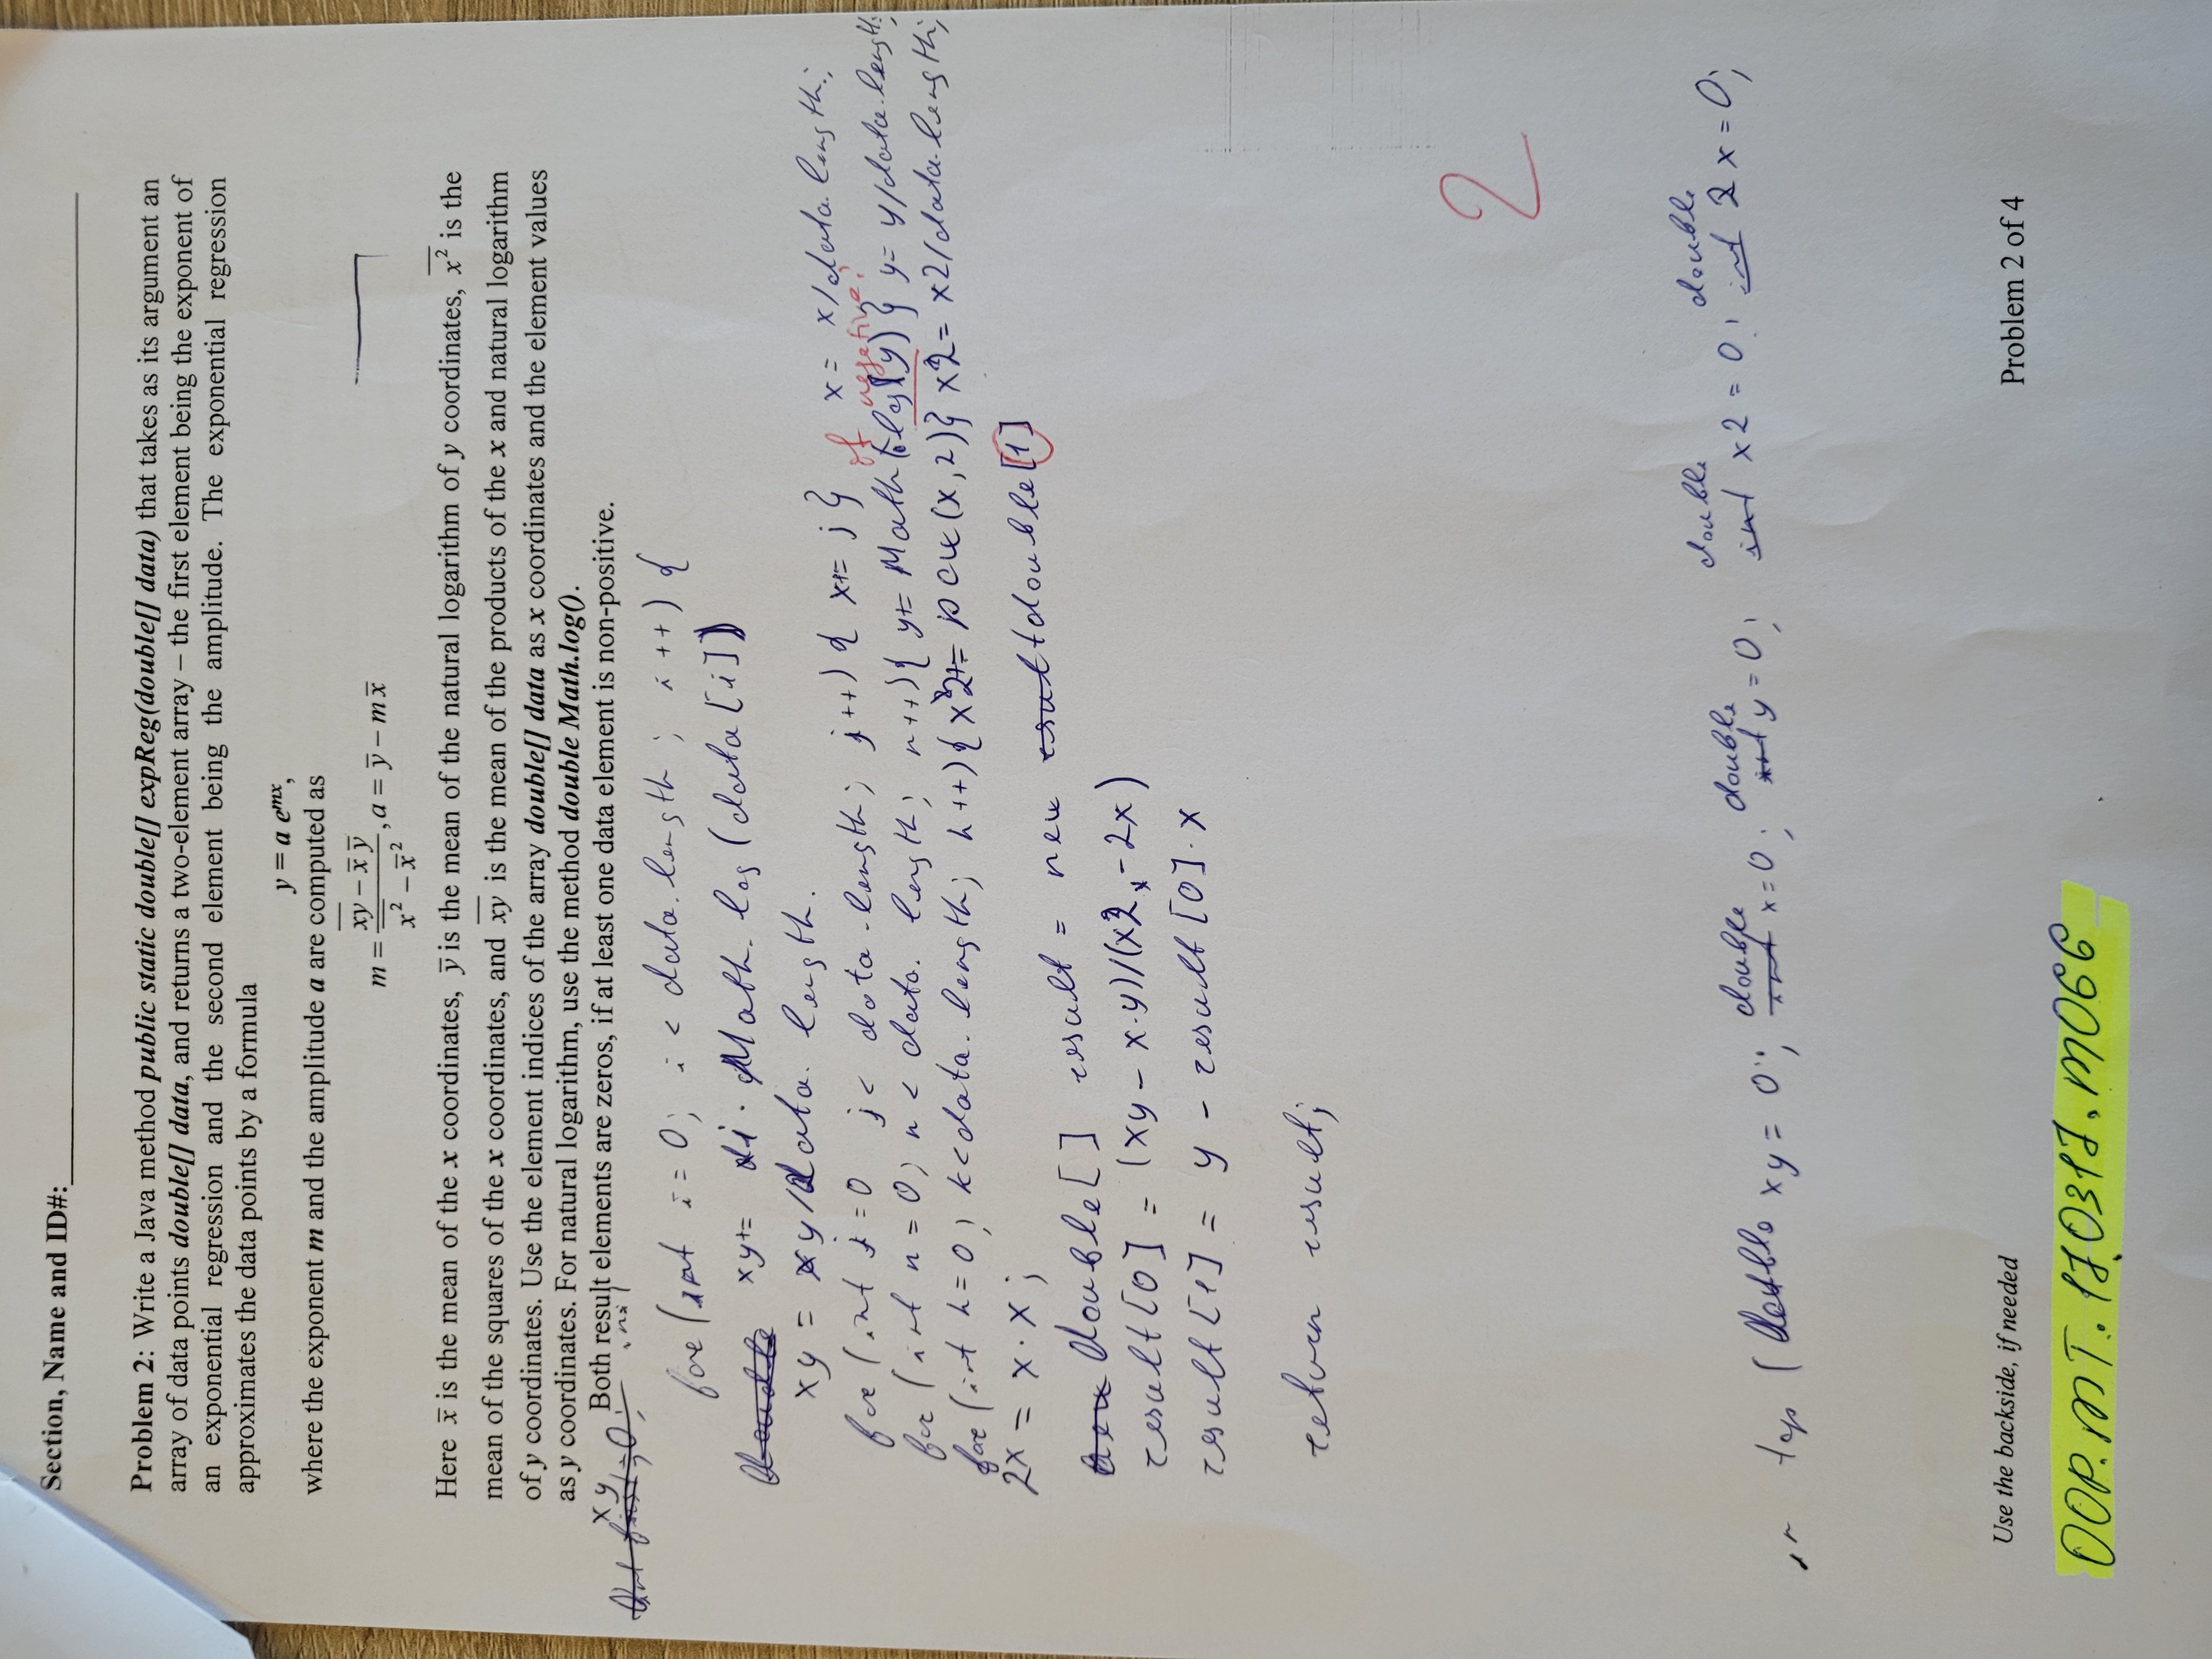 Section, Name and ID#:
Problem 2: Write a Java method public static double[] expReg(double[] data) that takes as its argument an
array of data points double[] data, and returns a two-element array – the first element being the exponent of
an exponential regression and the second element being the amplitude. The exponential regression
approximates the data points by a formula
y = a e^{mx},
where the exponent m and the amplitude a are computed as
m = (x̅y̅ – x̅ y̅) / (x̅²̅ – x̅²), a = y̅ – m x̅
Here x̅ is the mean of the x coordinates, y̅ is the mean of the natural logarithm of y coordinates, x̅²̅ is the
mean of the squares of the x coordinates, and x̅y̅ is the mean of the products of the x and natural logarithm
of y coordinates. Use the element indices of the array double[] data as x coordinates and the element values
as y coordinates. For natural logarithm, use the method double Math.log().
Both result elements are zeros, if at least one data element is non-positive.
xy
for (int i = 0; i < data.length; i++) {
xy+= i · Math.log(data[i])
xy = xy/data.length.
for (int j = 0 j < data.length; j++) { x+= j } x = x/data.length;
of negative?
for (int n = 0; n < data.length; n++){ y+= Math.log(y) } y = y/data.length;
for (int k = 0; k<data.length; k++){ x2+= pow(x,2)} x2 = x2/data.length;
2x = x · x;
double[] result = new double[1]
result[0] = (xy – x·y)/(x2 - 2x)
result[1] = y – result[0] · x
return result;
2
in top (double xy = 0; double x=0; double y=0; double x2 = 0; double 2x=0;
Use the backside, if needed
Problem 2 of 4
OOP.MT.170317.M066